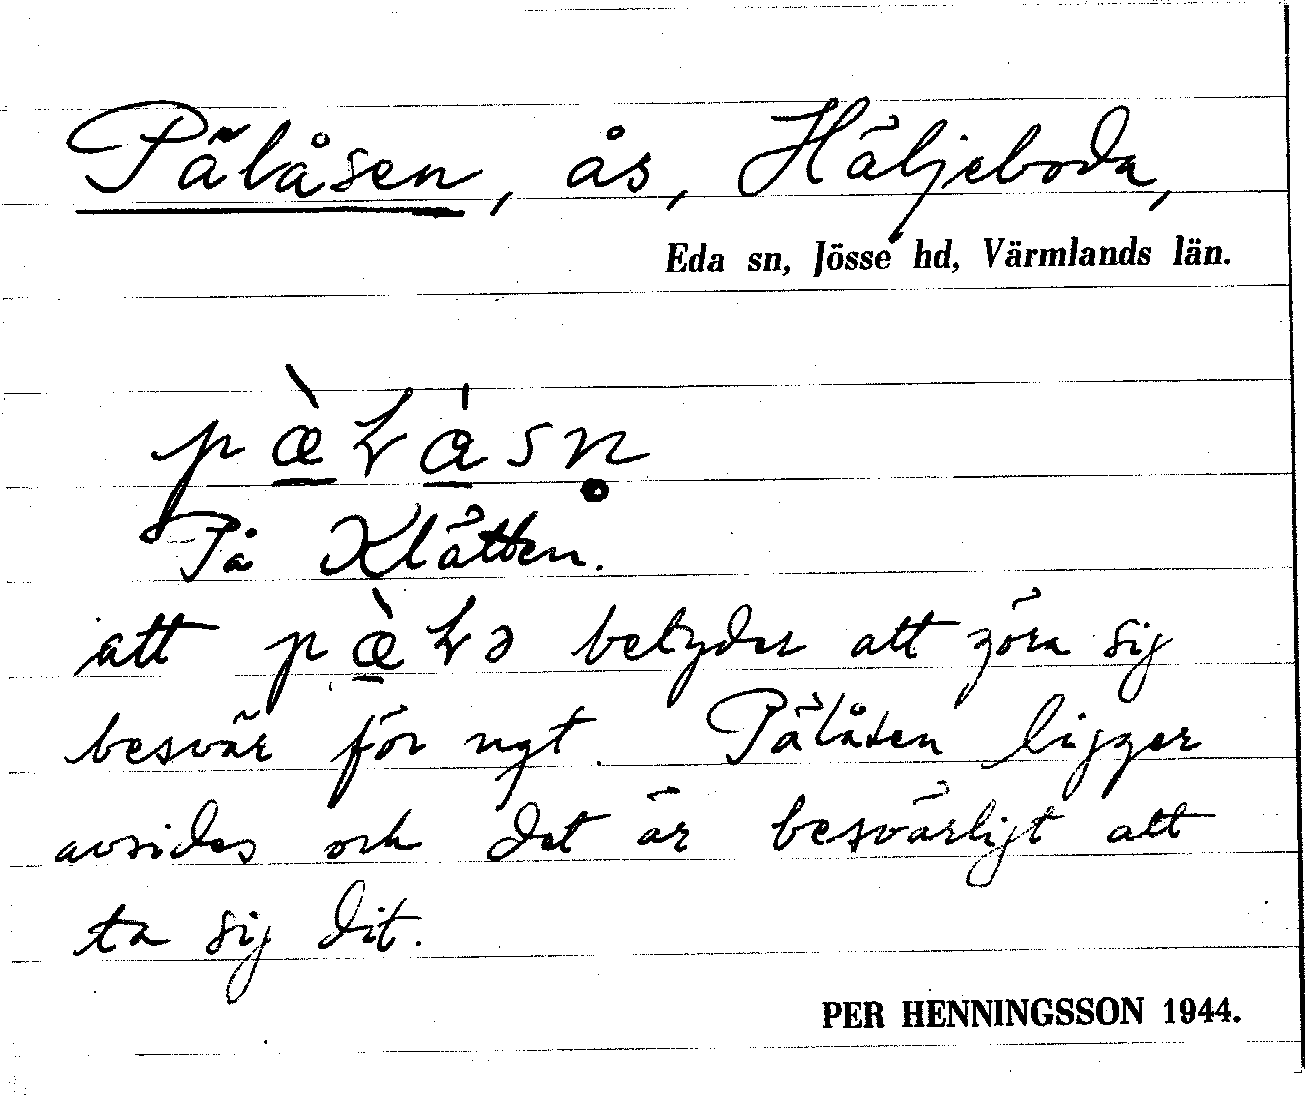 Pälåsen, ås, Häljeboda,
Eda sn, Jösse hd, Värmlands län.
pæ̀łåsn̥
På Klätten.
att pæ̀łə betyder att göra sig
besvär för ngt. Pälåsen ligger
avsides och det är besvärligt att
ta sig dit.
PER HENNINGSSON 1944.